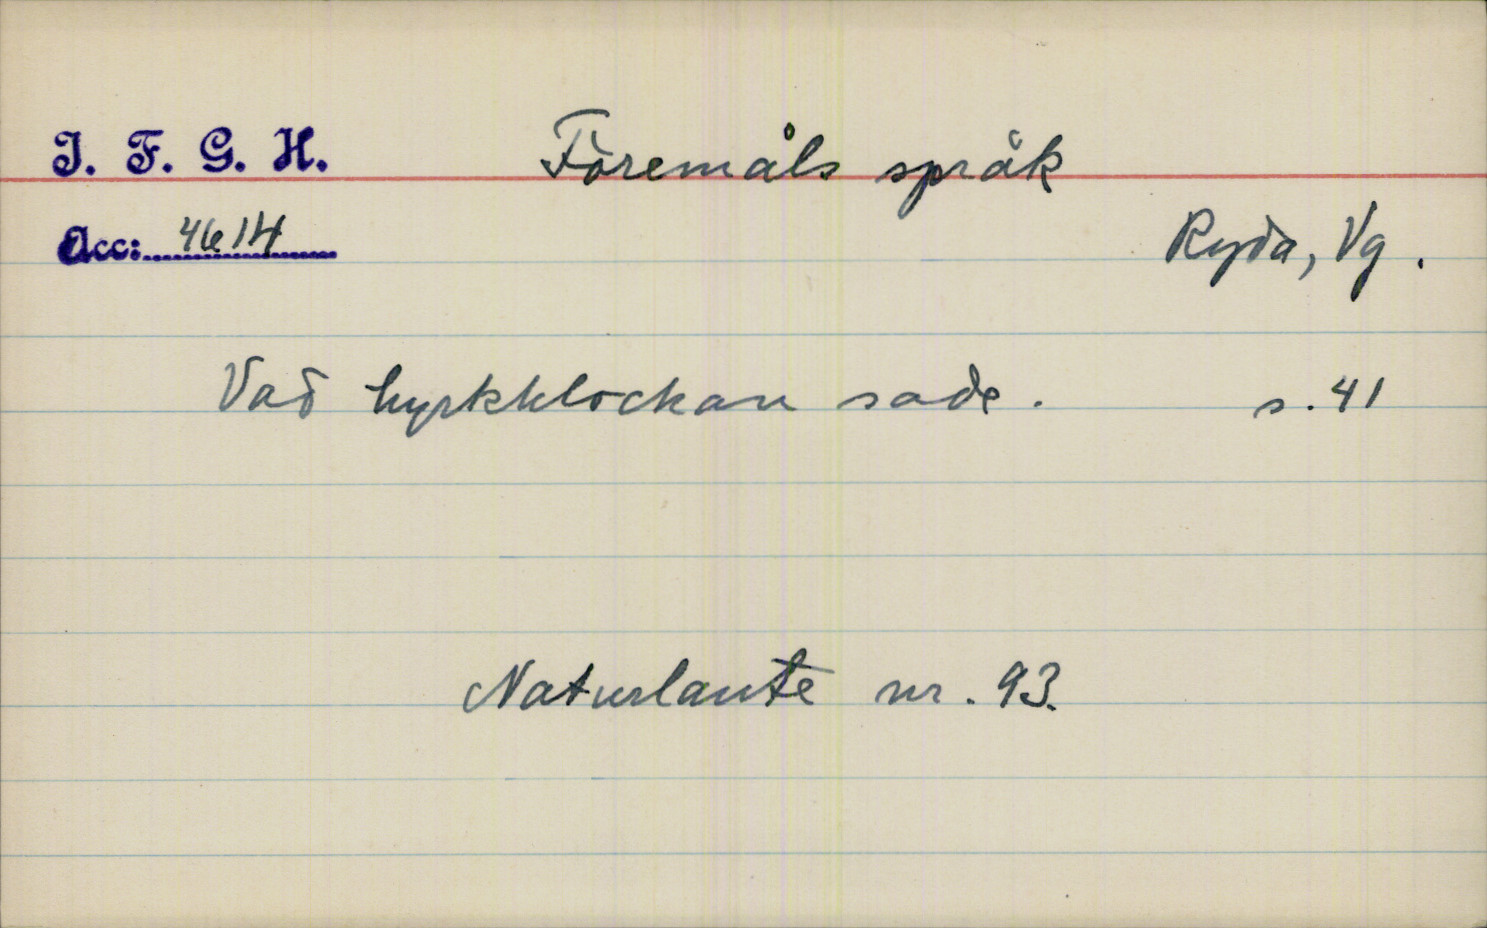 I. F. G. H.
Föremåls språk
Acc: 4614
Ryda, Vg.
Vad kyrkklockan sade. s. 41
Naturlaute nr. 93.